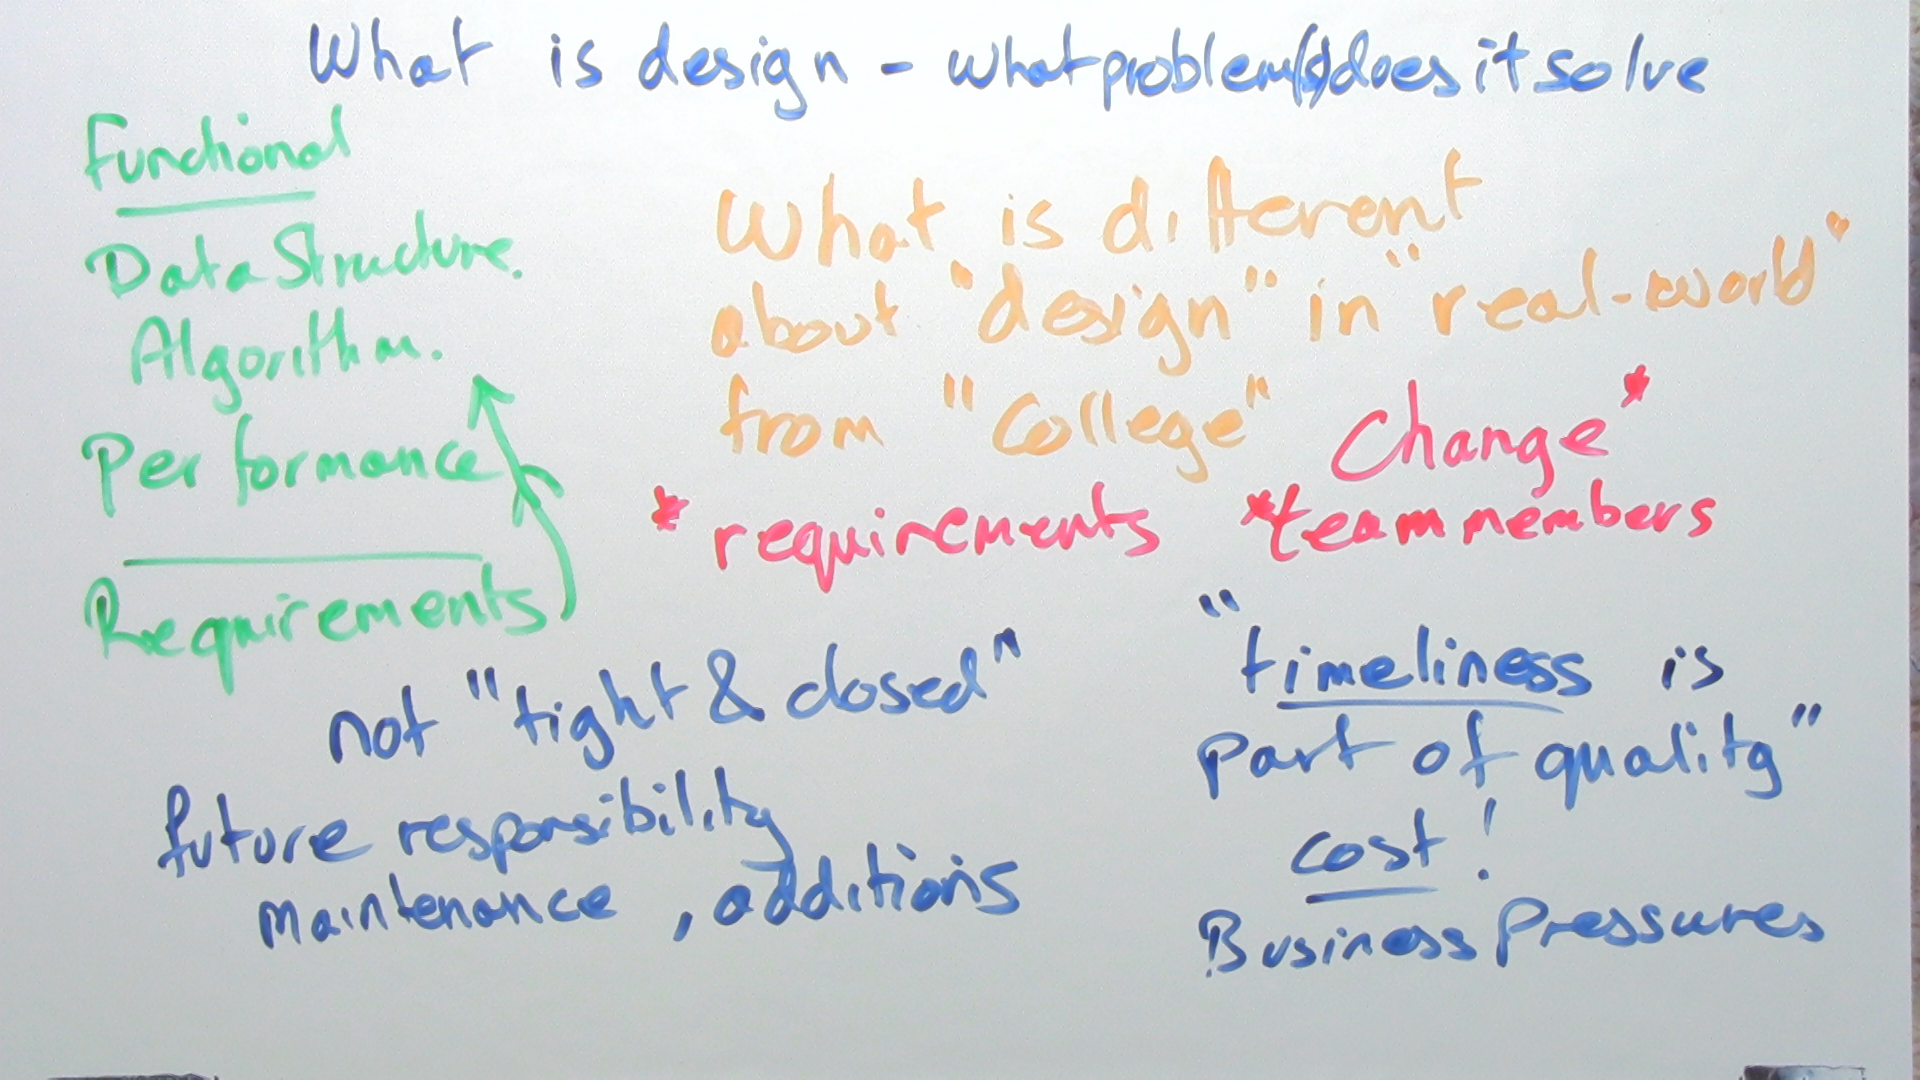 What is design - what problem(s) does it solve
Functional
Data Structure.
Algorithm.
Performance
Requirements
What is different
about "design" in "real-world"
from "College"
Change*
* requirements *team members
not "tight & closed"
future responsibility
maintenance, additions
"timeliness is
part of quality"
cost!
Business Pressures